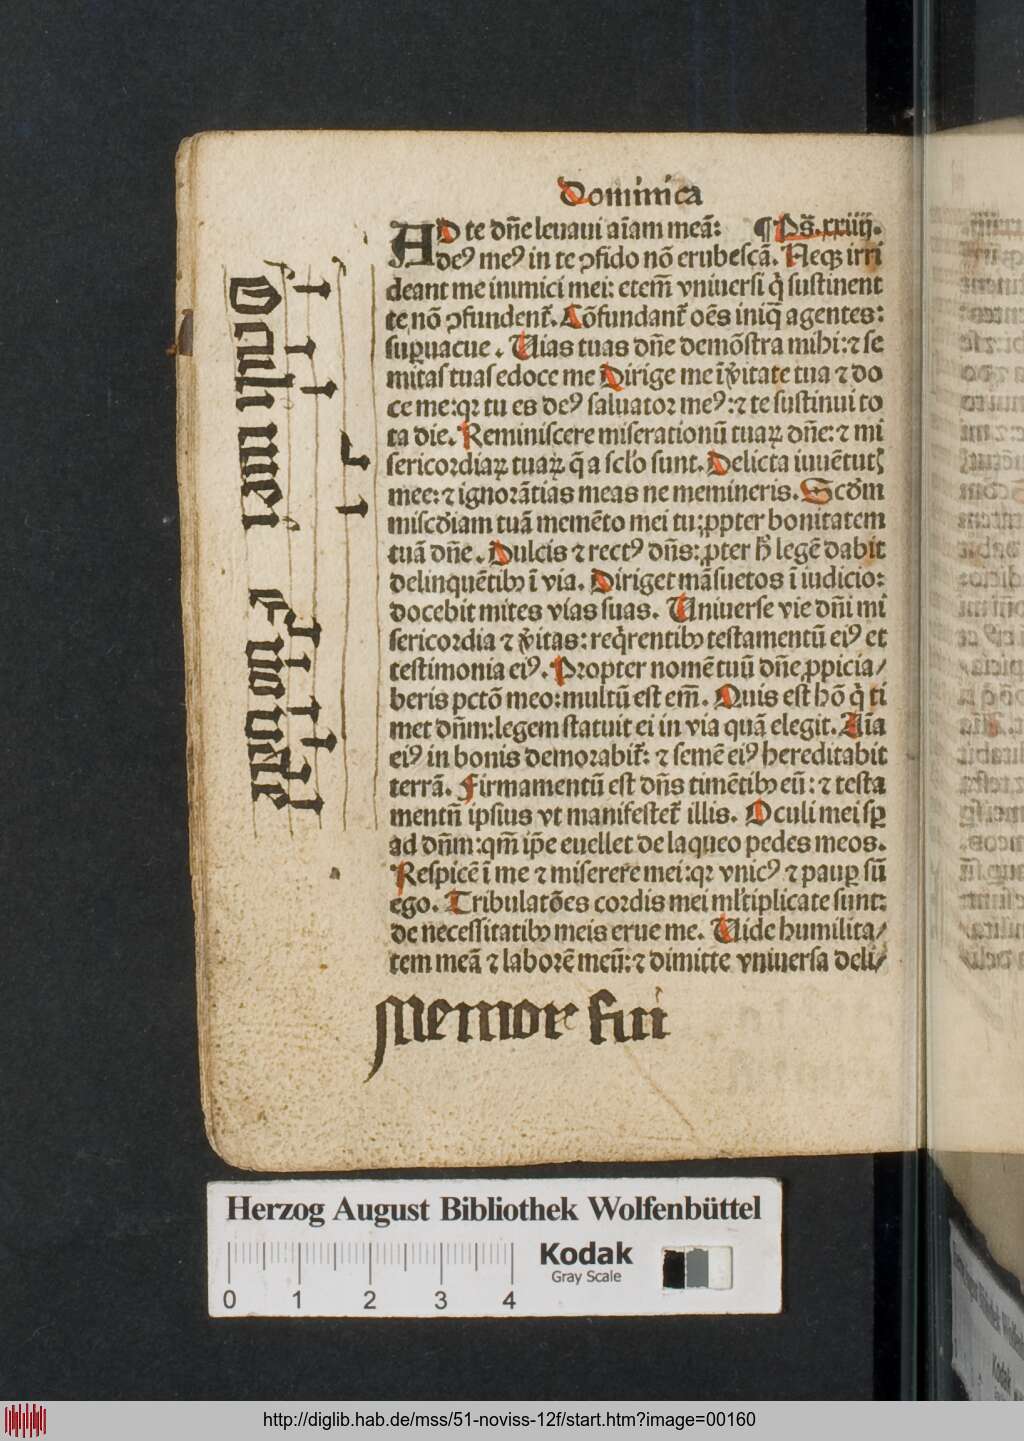 Dominica
AD te dn̄e leuaui aīam meā: ¶ Ps̄. xxiiij.
deꝰ meꝰ in te ꝯfido nō erubescā. Neqꝫ irri
deant me inimici mei: etem̄ vniuersi q̇ sustinent
te nō ꝯfundent̄. Cōfundant̄ oēs iniq̄ agentes:
suꝑuacue. Uias tuas dn̄e demōstra mihi: ⁊ se
mitas tuas edoce me Dirige me ī v̄itate tua ⁊ do
ce me: qꝛ tu es deꝰ saluator meꝰ: ⁊ te sustinui to
ta die. Reminiscere miserationū tuaꝝ dn̄e: ⁊ mi
sericordiaꝝ tuaꝝ q̄ a scl̄o sunt. Delicta iuuētutꝭ
mee: ⁊ ignorātias meas ne memineris. Scd̄m
miscd̄iam tuā memēto mei tu: ꝓpter bonitatem
tuā dn̄e. Dulcis ⁊ rectꝰ dn̄s: ꝓpter h̄ legē dabit
delinquētibꝫ ī via. Diriget māsuetos ī iudicio:
docebit mites vias suas. Uniuerse vie dn̄i mi
sericordia ⁊ v̄itas: reqꝛentibꝫ testamentū eiꝰ et
testimonia eiꝰ. Propter nomē tuū dn̄e ꝓpicia/
beris pctō meo: multū est em̄. Quis est hō q̇ ti
met dn̄m: legem statuit ei in via quā elegit. Aīa
eiꝰ in bonis demorabit̄: ⁊ semē eiꝰ hereditabit
terrā. Firmamentū est dn̄s timētibꝫ eū: ⁊ testa
mentū ipsius vt manifestet̄ illis. Oculi mei sꝑ
ad dn̄m: qm̄ ip̄e euellet de laqueo pedes meos.
Respicē ī me ⁊ miserere mei: qꝛ vnicꝰ ⁊ pauꝑ sū
ego. Tribulatōes cordis mei ml̄tiplicate sunt:
de necessitatibꝫ meis erue me. Uide humilita/
tem meā ⁊ laborē meū: ⁊ dimitte vniuersa deli/
Oculi mei
Memor fui
Herzog August Bibliothek Wolfenbüttel
Kodak
Gray Scale
0 1 2 3 4
http://diglib.hab.de/mss/51-noviss-12f/start.htm?image=00160